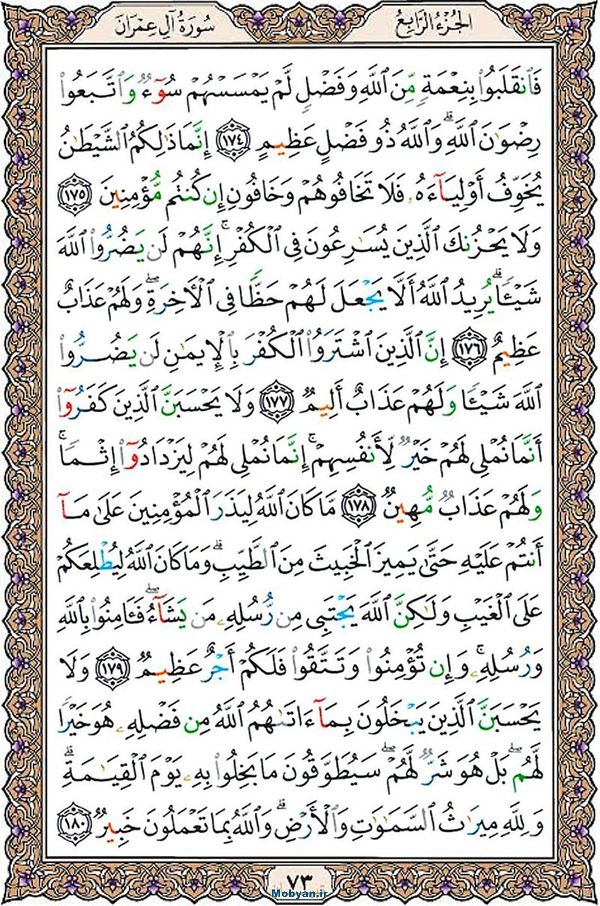 الجُزءُ الرَّابِعُ
سُورَةُ آلِ عِمْرَانَ
فَٱنقَلَبُوا۟ بِنِعْمَةٍ مِّنَ ٱللَّهِ وَفَضْلٍ لَّمْ يَمْسَسْهُمْ سُوٓءٌ وَٱتَّبَعُوا۟
رِضْوَٰنَ ٱللَّهِ ۗ وَٱللَّهُ ذُو فَضْلٍ عَظِيمٍ ١٧٤ إِنَّمَا ذَٰلِكُمُ ٱلشَّيْطَٰنُ
يُخَوِّفُ أَوْلِيَآءَهُۥ فَلَا تَخَافُوهُمْ وَخَافُونِ إِن كُنتُم مُّؤْمِنِينَ ١٧٥
وَلَا يَحْزُنكَ ٱلَّذِينَ يُسَٰرِعُونَ فِى ٱلْكُفْرِ ۚ إِنَّهُمْ لَن يَضُرُّوا۟ ٱللَّهَ
شَيْـًٔا ۗ يُرِيدُ ٱللَّهُ أَلَّا يَجْعَلَ لَهُمْ حَظًّا فِى ٱلْـَٔاخِرَةِ ۖ وَلَهُمْ عَذَابٌ
عَظِيمٌ ١٧٦ إِنَّ ٱلَّذِينَ ٱشْتَرَوُا۟ ٱلْكُفْرَ بِٱلْإِيمَٰنِ لَن يَضُرُّوا۟
ٱللَّهَ شَيْـًٔا وَلَهُمْ عَذَابٌ أَلِيمٌ ١٧٧ وَلَا يَحْسَبَنَّ ٱلَّذِينَ كَفَرُوٓا۟
أَنَّمَا نُمْلِى لَهُمْ خَيْرٌ لِّأَنفُسِهِمْ ۚ إِنَّمَا نُمْلِى لَهُمْ لِيَزْدَادُوٓا۟ إِثْمًا ۚ
وَلَهُمْ عَذَابٌ مُّهِينٌ ١٧٨ مَّا كَانَ ٱللَّهُ لِيَذَرَ ٱلْمُؤْمِنِينَ عَلَىٰ مَآ
أَنتُمْ عَلَيْهِ حَتَّىٰ يَمِيزَ ٱلْخَبِيثَ مِنَ ٱلطَّيِّبِ ۗ وَمَا كَانَ ٱللَّهُ لِيُطْلِعَكُمْ
عَلَى ٱلْغَيْبِ وَلَٰكِنَّ ٱللَّهَ يَجْتَبِى مِن رُّسُلِهِۦ مَن يَشَآءُ ۖ فَـَٔامِنُوا۟ بِٱللَّهِ
وَرُسُلِهِۦ ۚ وَإِن تُؤْمِنُوا۟ وَتَتَّقُوا۟ فَلَكُمْ أَجْرٌ عَظِيمٌ ١٧٩ وَلَا
يَحْسَبَنَّ ٱلَّذِينَ يَبْخَلُونَ بِمَآ ءَاتَىٰهُمُ ٱللَّهُ مِن فَضْلِهِۦ هُوَ خَيْرًا
لَّهُم ۖ بَلْ هُوَ شَرٌّ لَّهُمْ ۖ سَيُطَوَّقُونَ مَا بَخِلُوا۟ بِهِۦ يَوْمَ ٱلْقِيَٰمَةِ ۗ
وَلِلَّهِ مِيرَٰثُ ٱلسَّمَٰوَٰتِ وَٱلْأَرْضِ ۗ وَٱللَّهُ بِمَا تَعْمَلُونَ خَبِيرٌ ١٨٠
٧٣
Mobyan.ir